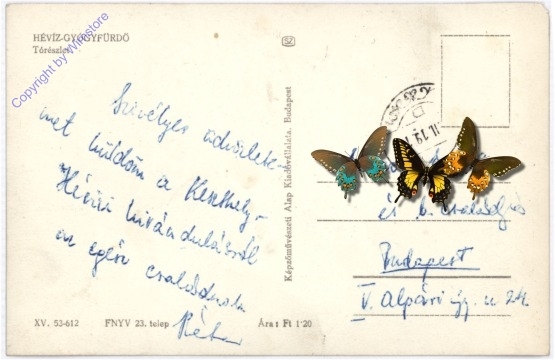 HÉVÍZ-GYÓGYFÜRDŐ
Tórészlet
Copyright by Winstore
Szívélyes üdvözlete-
met küldöm a Keszthely-
Hévízi kirándulásról
az egész családnak
Képzőművészeti Alap Kiadóvállalata, Budapest
és b. családja
Budapest
V. Alpári Gy. u.
XV. 53-612 FNYV 23. telep Ára: Ft 1·20